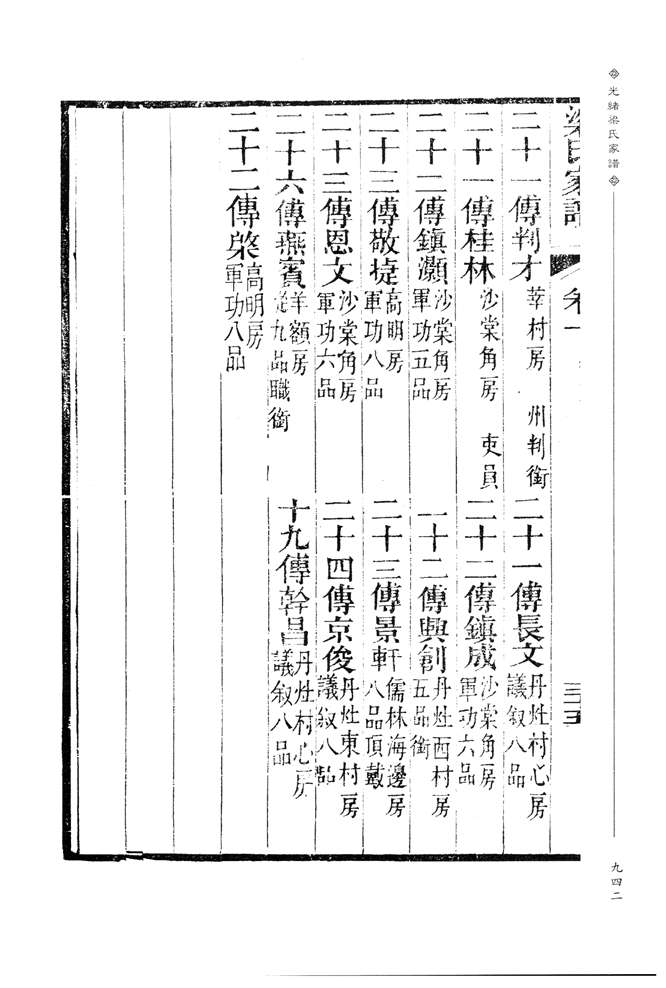 光緒梁氏家譜
梁氏家譜 卷一 三十五
二十一傳判才 莘村房 州判銜
二十一傳長文 丹灶村心房 議敘八品
二十一傳桂林 沙棠角房 吏員
二十二傳鎮成 沙棠角房 軍功六品
二十二傳鎮灝 沙棠角房 軍功五品
二十二傳興創 丹灶西村房 五品銜
二十三傳敬㨗 高明房 軍功八品
二十三傳景軒 儒林海邊房 八品頂戴
二十三傳恩文 沙棠角房 軍功六品
二十四傳京俊 丹灶東村房 議敘八品
二十六傳燕賓 羊額房 從九品職銜
十九傳幹昌 丹灶村心房 議敘八品
二十二傳棨 高明房 軍功八品
九四二